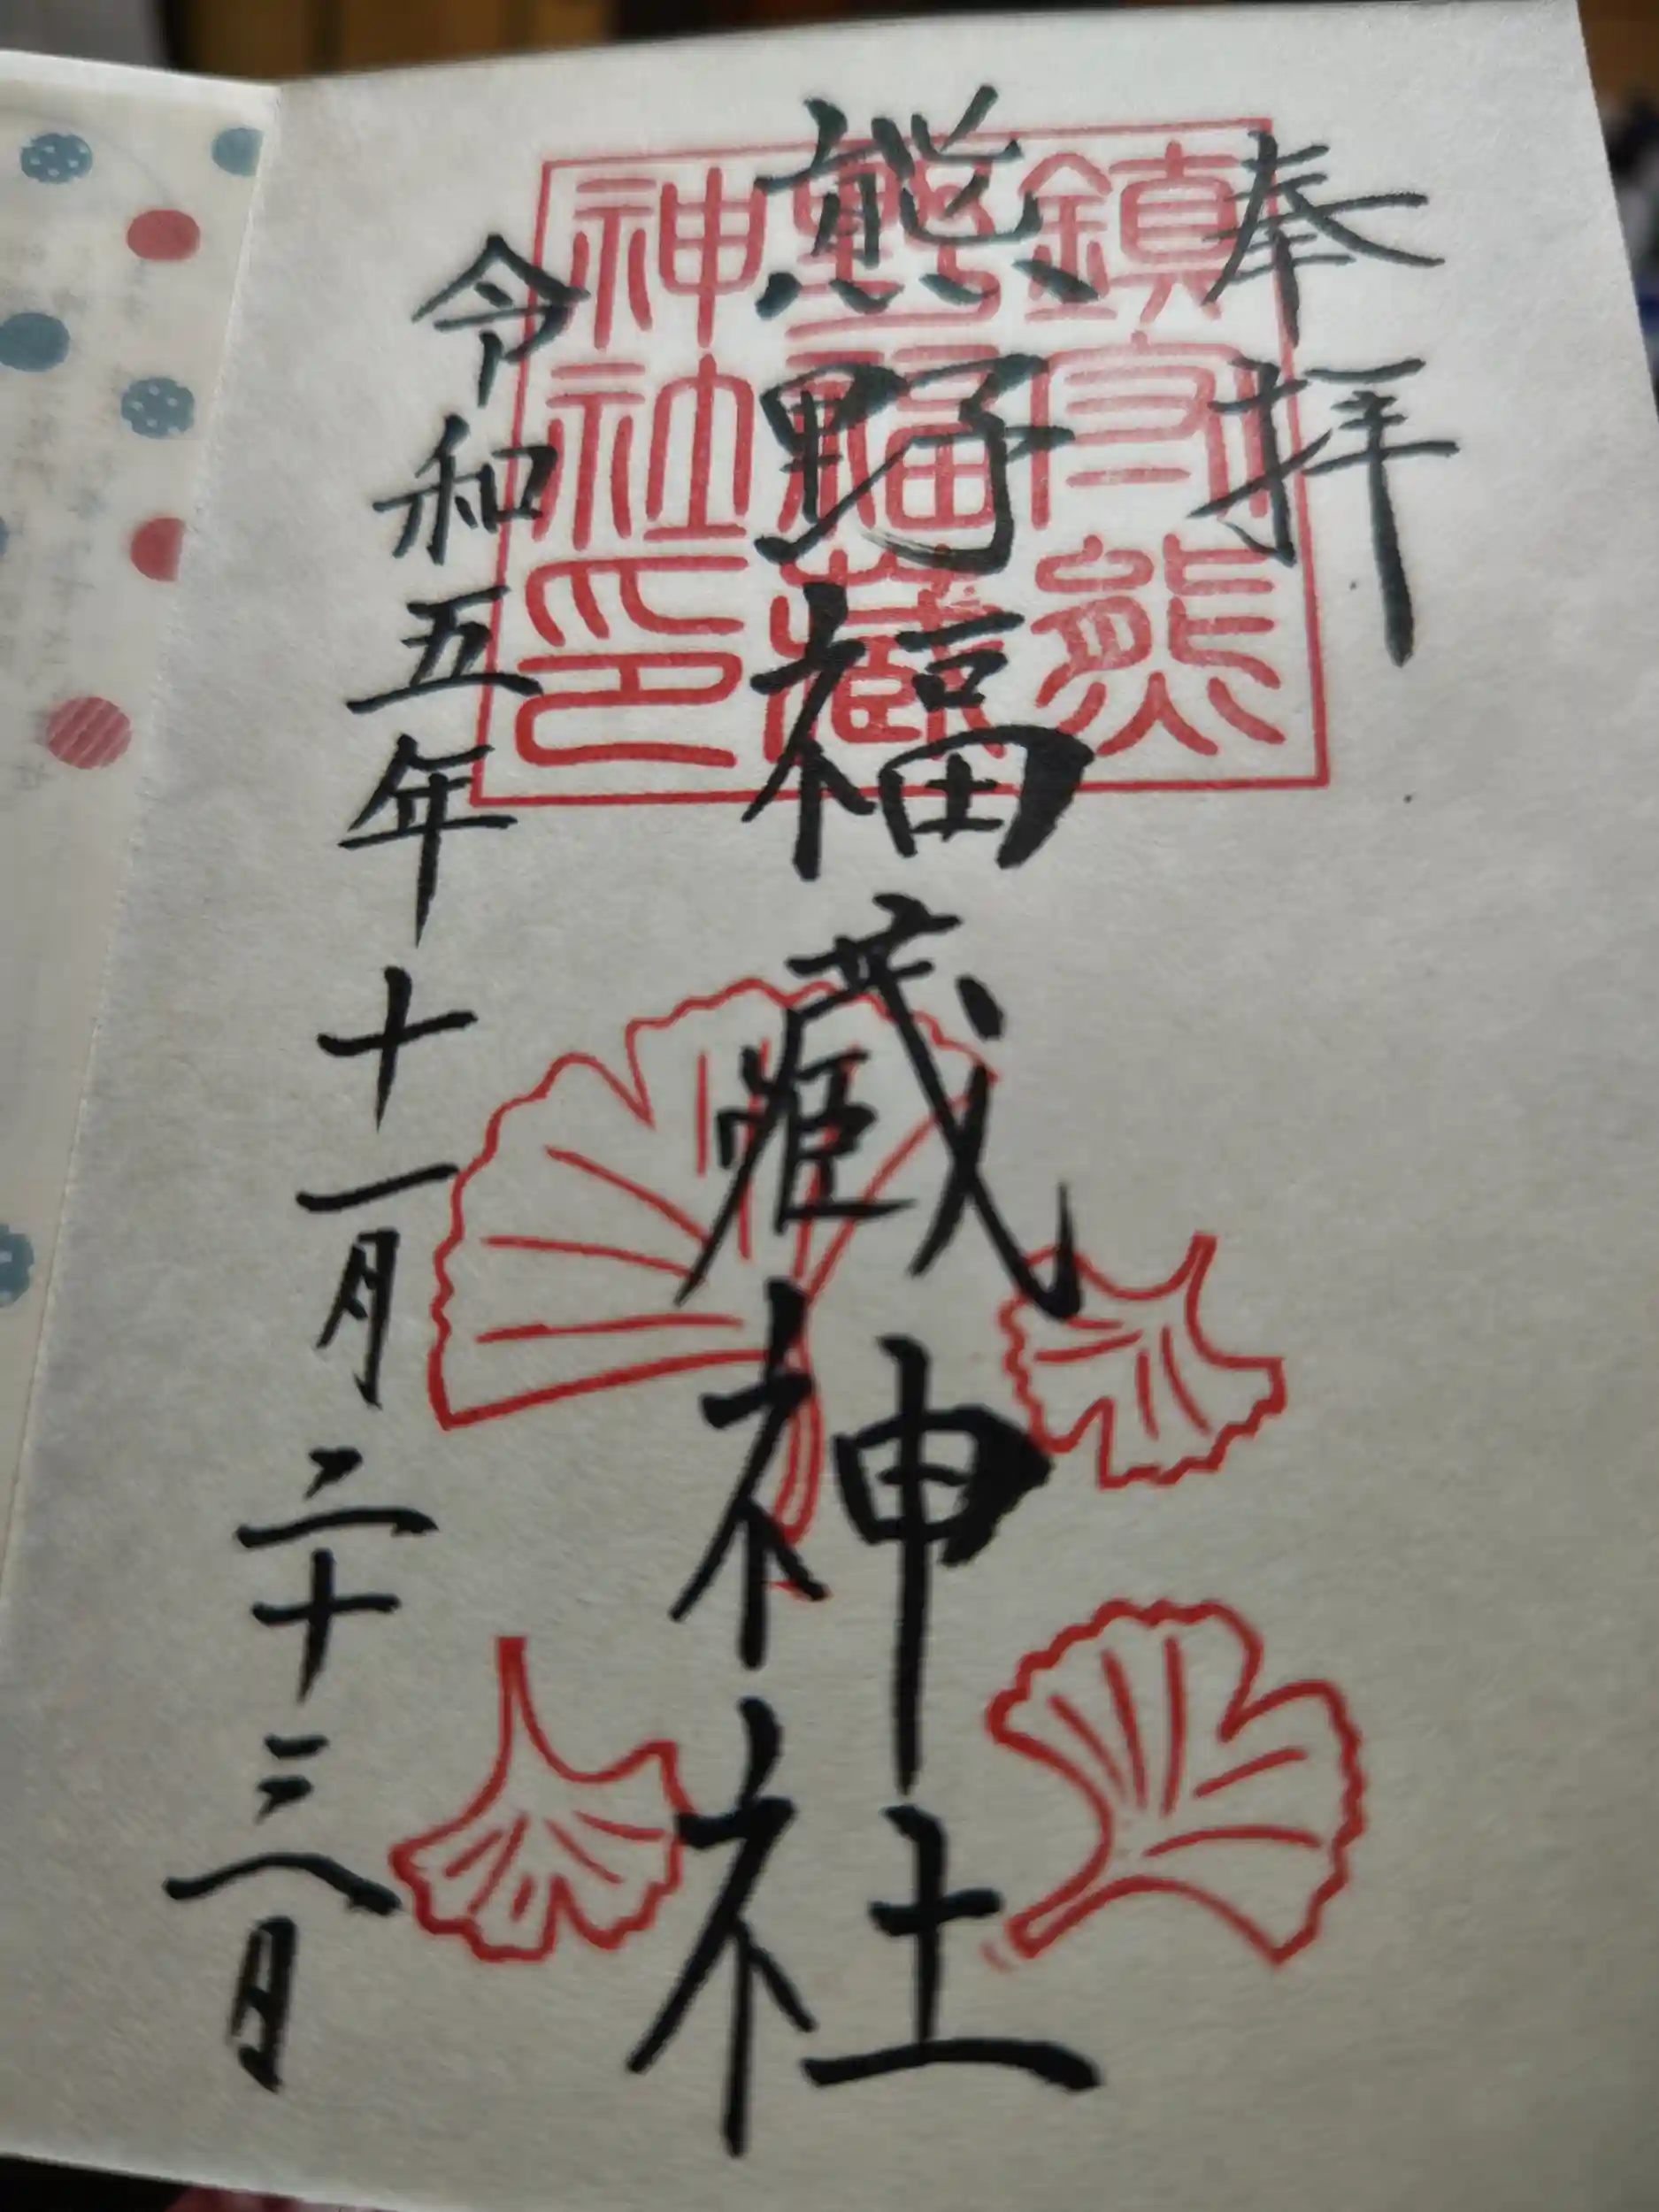 奉拝
熊野福藏神社
令和五年十一月二十三日
鎮守熊
野福藏
神社印